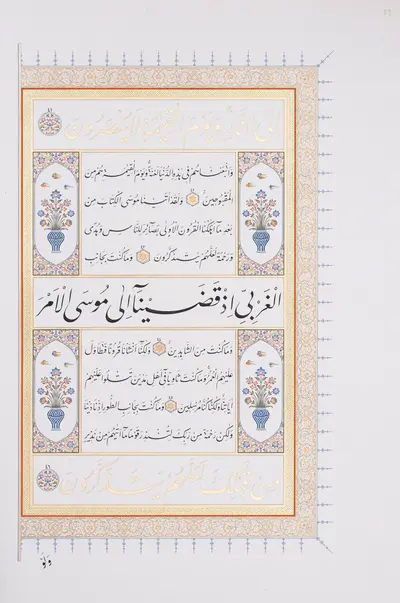 اِلَى النَّارِ وَيَوْمَ الْقِيٰمَةِ لَا يُنْصَرُونَ
وَاَتْبَعْنَاهُمْ فِي هٰذِهِ الدُّنْيَا لَعْنَةً وَيَوْمَ الْقِيٰمَةِ هُمْ مِنَ
الْمَقْبُوحِينَ وَلَقَدْ اٰتَيْنَا مُوسَى الْكِتَابَ مِنْ
بَعْدِ مَا اَهْلَكْنَا الْقُرُونَ الْاُولٰى بَصَائِرَ لِلنَّاسِ وَهُدًى
وَرَحْمَةً لَعَلَّهُمْ يَتَذَكَّرُونَ وَمَا كُنْتَ بِجَانِبِ
الْغَرْبِيِّ اِذْ قَضَيْنَا اِلٰى مُوسَى الْاَمْرَ
وَمَا كُنْتَ مِنَ الشَّاهِدِينَ وَلٰكِنَّا اَنْشَأْنَا قُرُونًا فَتَطَاوَلَ
عَلَيْهِمُ الْعُمُرُ وَمَا كُنْتَ ثَاوِيًا فِي اَهْلِ مَدْيَنَ تَتْلُوا عَلَيْهِمْ
اٰيَاتِنَا وَلٰكِنَّا كُنَّا مُرْسِلِينَ وَمَا كُنْتَ بِجَانِبِ الطُّورِ اِذْ نَادَيْنَا
وَلٰكِنْ رَحْمَةً مِنْ رَبِّكَ لِتُنْذِرَ قَوْمًا مَا اَتٰيهُمْ مِنْ نَذِيرٍ
مِنْ قَبْلِكَ لَعَلَّهُمْ يَتَذَكَّرُونَ
وَلَوْ